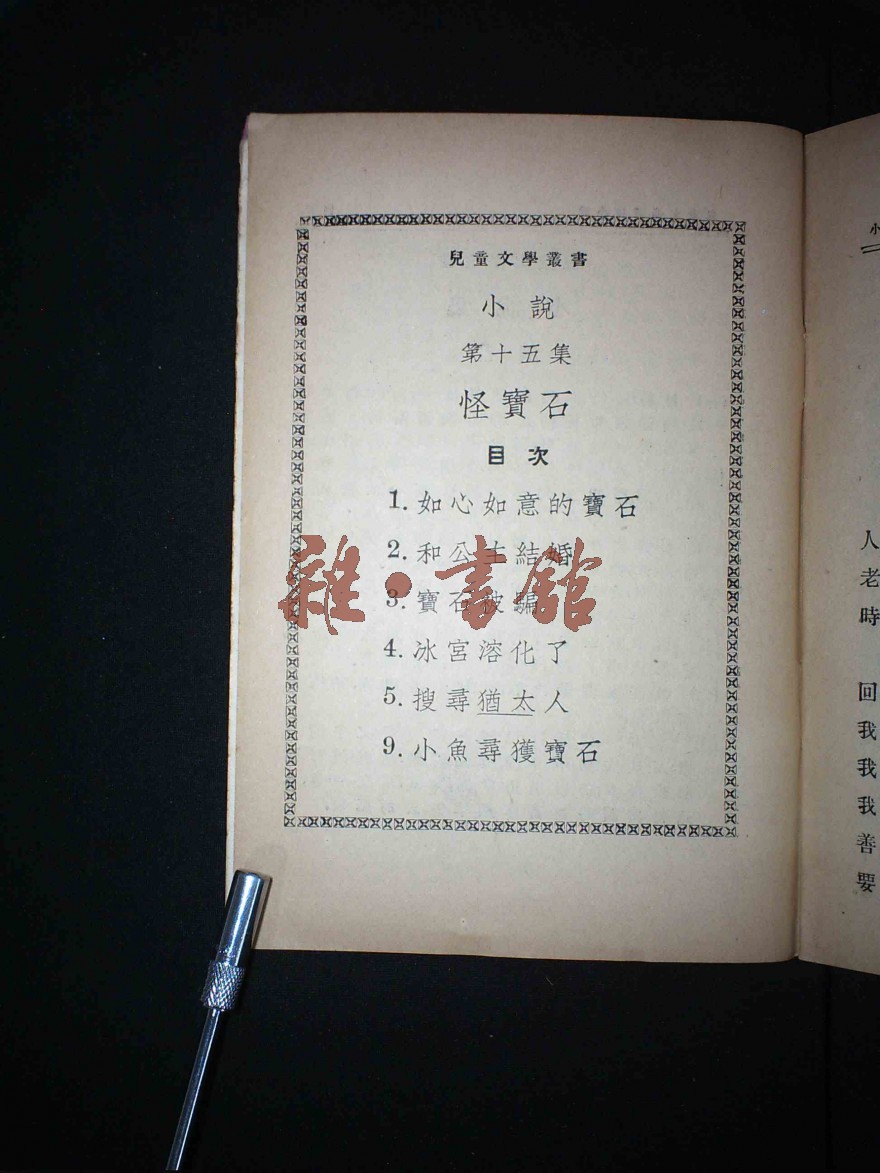 兒童文學叢書
小說
第十五集
怪寶石
目次
1. 如心如意的寶石
2. 和公主結婚
3. 寶石被騙
4. 冰宮溶化了
5. 搜尋猶太人
9. 小魚尋獲寶石
雜·書館
小
人老時
回我我我善要